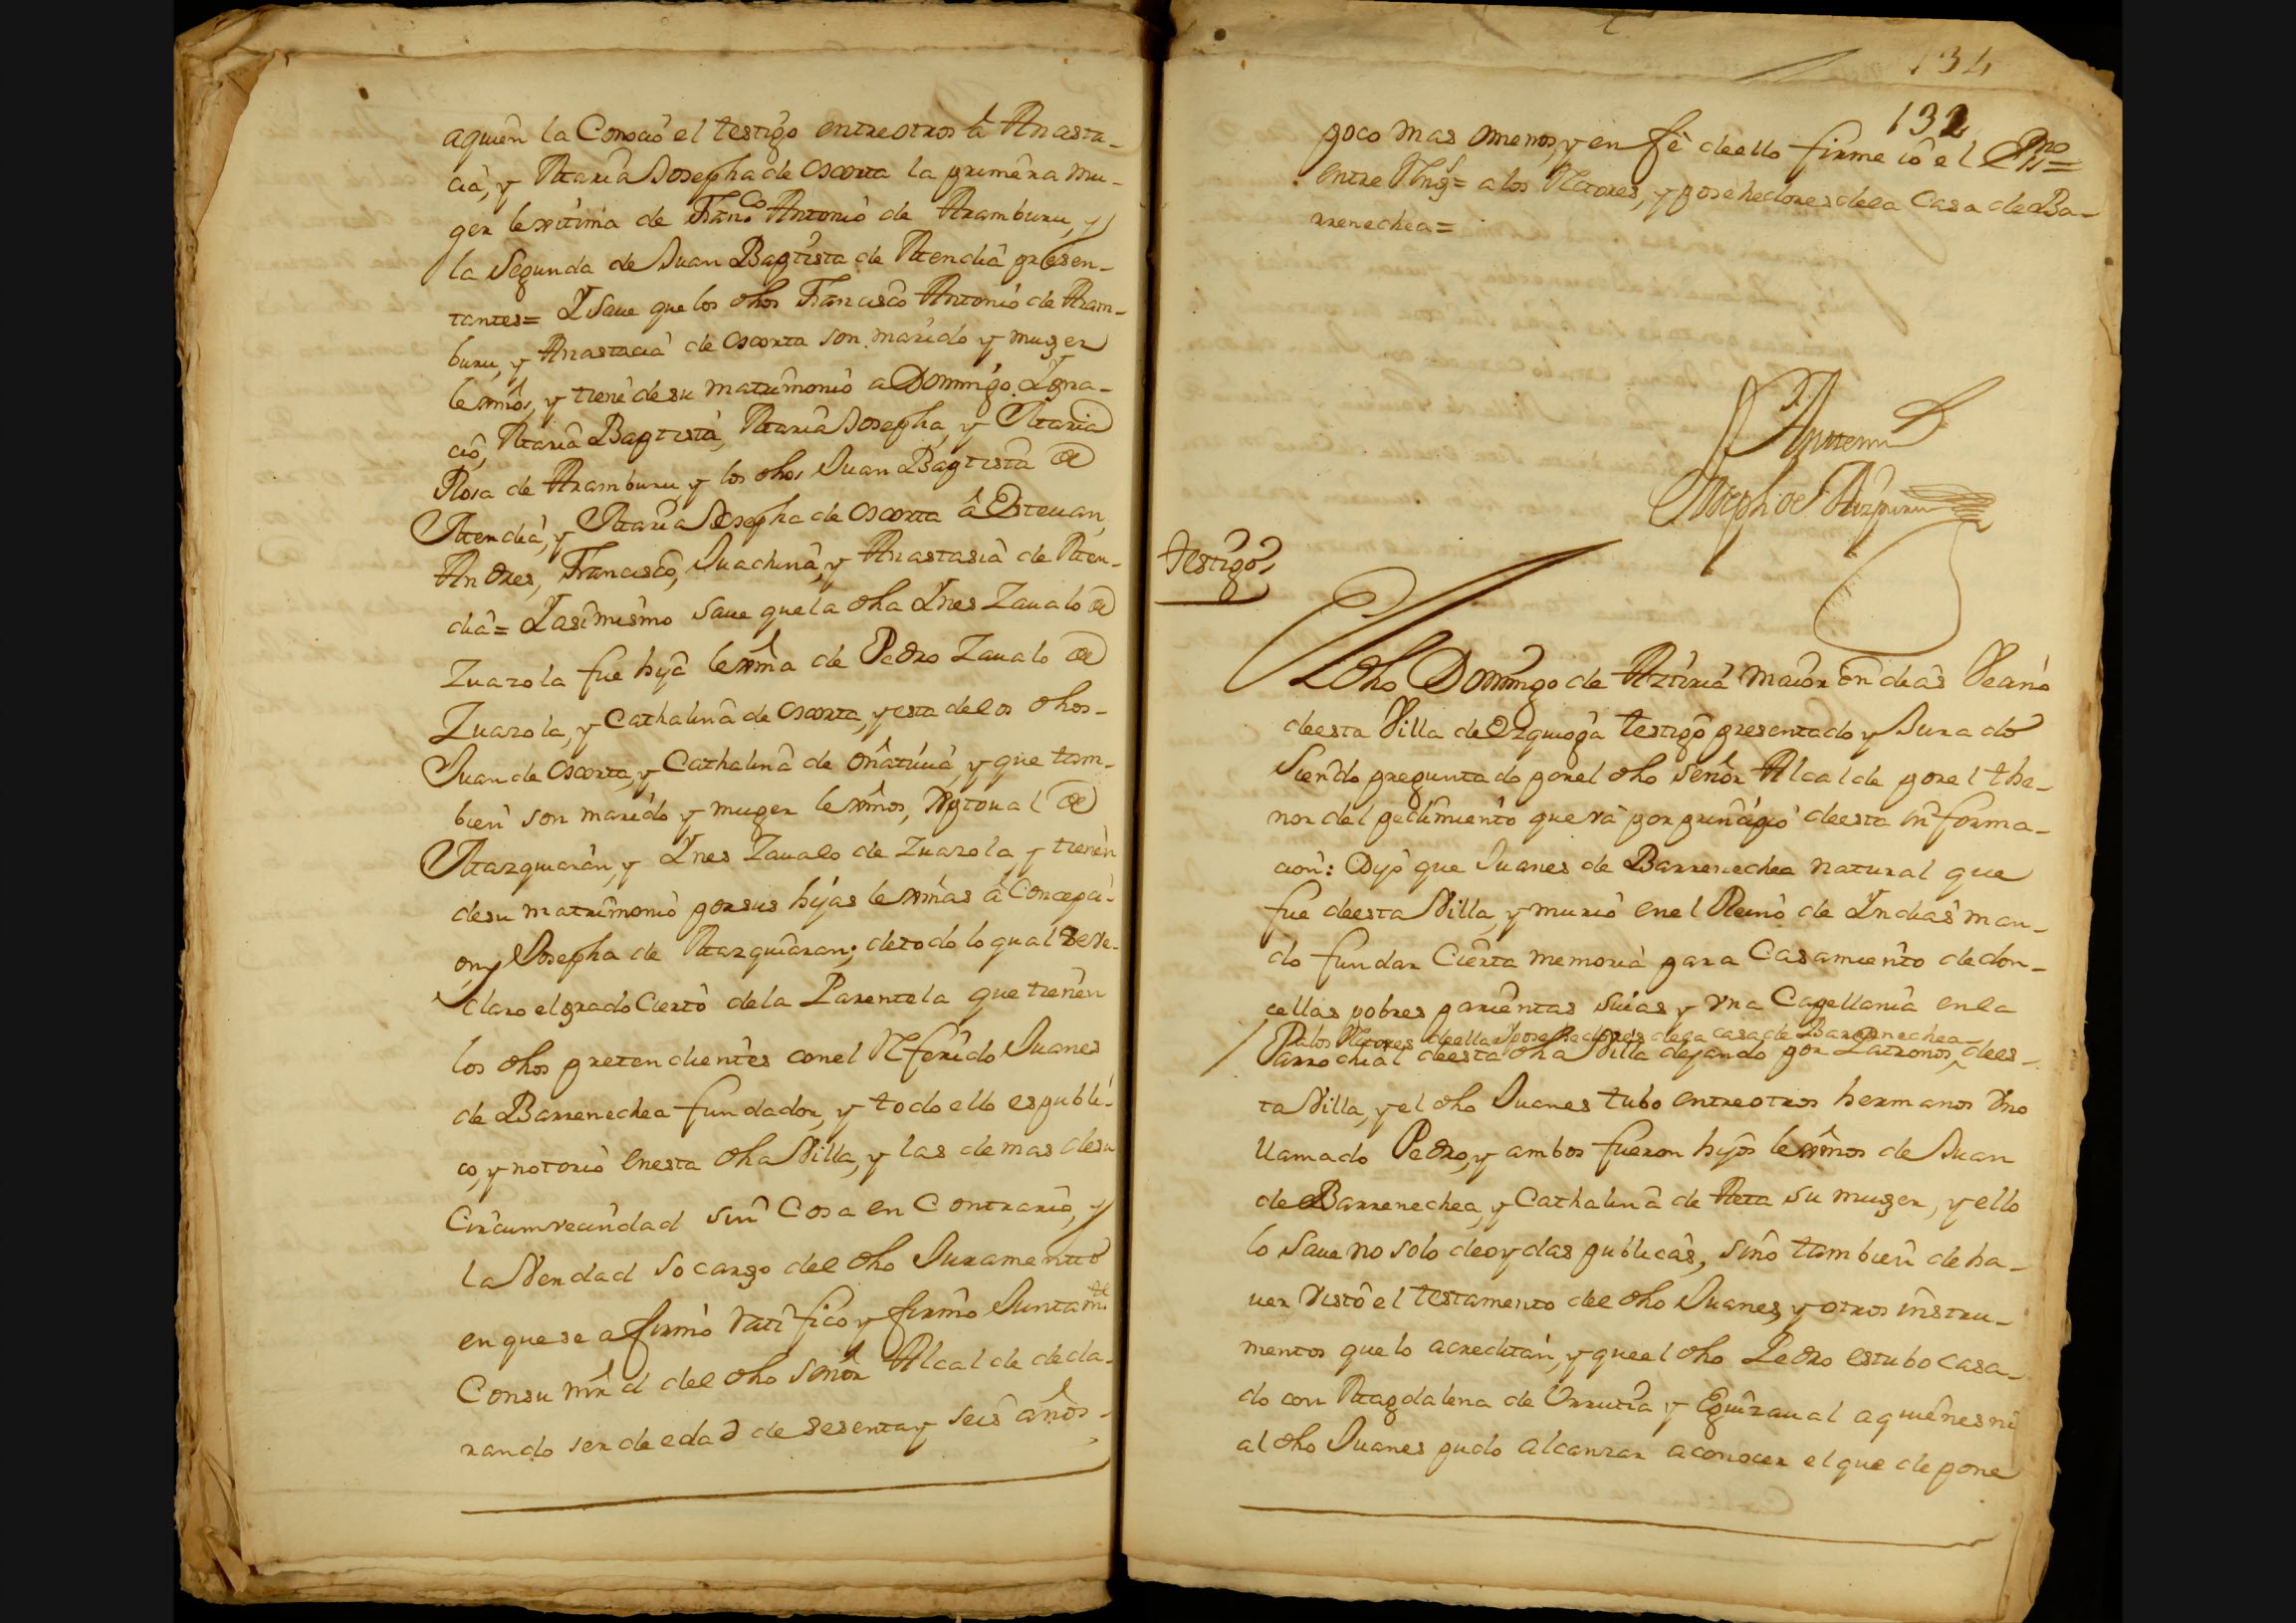 aquien la Conoció el testigo entre otros á Anasta-
cia, y Maria Josepha de Osorta la primera mu-
ger lexitima de Franco Antonio de Aramburu, y
la Segunda de Juan Baptista de Mendia presen-
tantes= Y Save que los dhos Francisco Antonio de Aram-
buru, y Anastacia de Osorta son marido y muger
lexmos, y tiene de su matrimonio a Domingo Ygna-
cio, Maria Baptista, Maria Josepha, y Maria
Rosa de Aramburu, y los dhos Juan Baptista de
Mendia, y Maria Josepha de Osorta â Estevan,
Andres, Francisco, Juachina, y Anastasia de Men-
dia= Y asimismo save que la dha Ynes Zavalo de
Zuazola fue hija lexma de Pedro Zavalo de
Zuazola, y Cathalina de Osorta, y esta de los dhos-
Juan de Osorta, y Cathalina de Oñativia, y que tam-
bien son marido y muger lexmos, Xptoval de
Mazquiarán, y Ynes Zavalo de Zuazola y tienen
de su matrimonio por sus hijas lexmas â Concepci-
on y Josepha de Mazquiaran; de todo lo qual se ve-
claro el grado Cierto de la Parentela que tienen
los dhos pretendientes con el Referido Juanes
de Barrenechea fundador, y todo ello es publi-
co, y notorio en esta dha Villa, y las demas de su
Circumvecindad sin Cosa en Contrario, y
la Verdad so cargo del dho Juramento
en que se afirmó ratifico y firmo Juntamte
Con su mrd del dho Señor Alcalde decla-
rando ser de edad de sesenta y seis años-
134
132
poco mas o menos, y en fe de ello firme io el Srno=
entre Rngs= a los Rectores, y posehedores de la Casa de Ba-
rrenechea=
Antemi
Joseph de Aizpuru
testigo 2
El dho Domingo de Aztiria maior en dias Vecino
de esta Villa de Ezquioga testigo presentado y Jurado
Siendo preguntado por el dho señor Alcalde por el the-
nor del pedimiento que va por principio de esta informa-
cion: Dijo que Juanes de Barrenechea natural que
fue de esta Villa, y murió en el Reino de Yndias man-
do fundar Cierta memoria para Casamiento de don-
cellas pobres parientas suias y vna Capellania en la
a los Rectores de ella y posehedores de la casa de Barrenechea
Parrochial de esta dha Villa dejando por Patronos, de es-
ta Villa, y el dho Juanes tubo entre otros hermanos Vno
llamado Pedro, y ambos fueron hijos lexmos de Juan
de Barrenechea, y Cathalina de Reta su muger, y ello
lo Save no solo de oydas publicas, sino tambien de ha-
ver visto el testamento del dho Juanes, y otros instru-
mentos que lo acreditan, y que el dho Pedro estubo casa-
do con Magdalena de Urrutia y Eguizaval a quienes ni
al dho Juanes pudo alcanzar a conocer el que depone